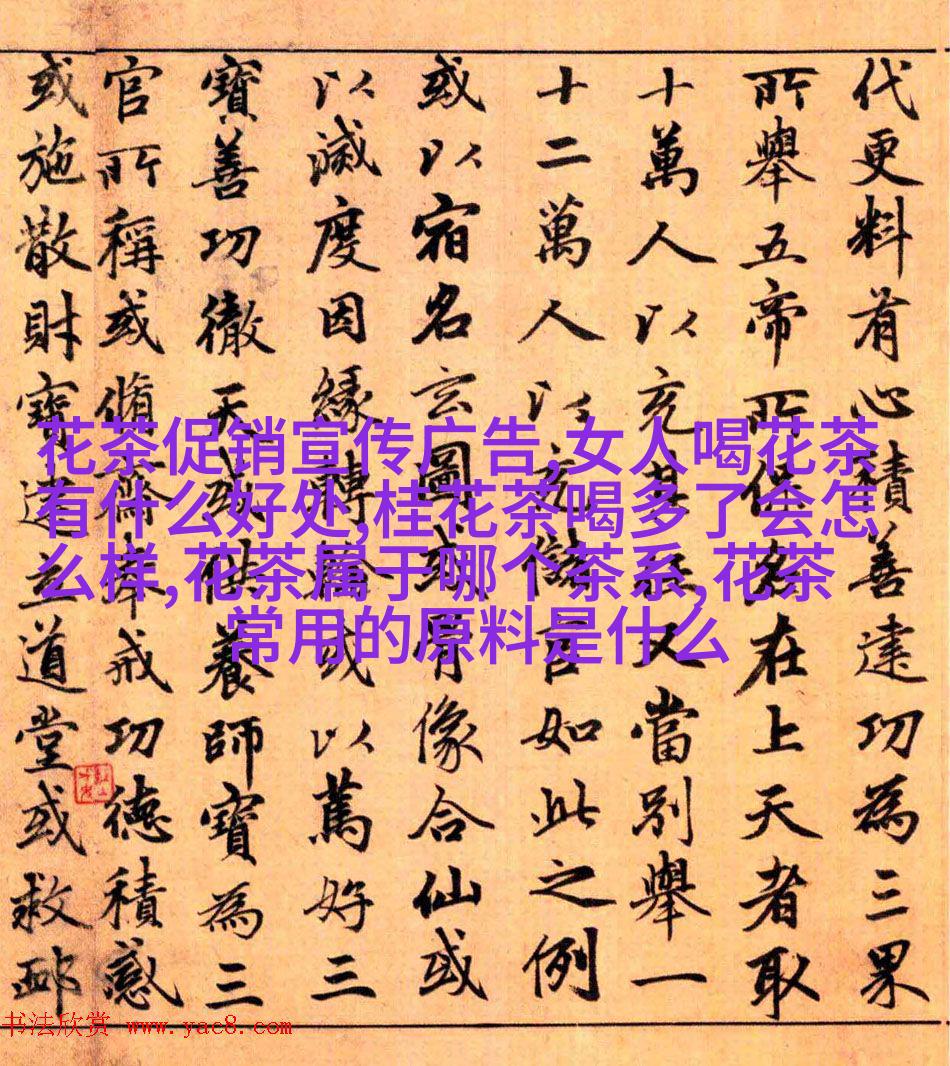 代更料有心積善達功為三果
所舉五帝所保名在上天者取
十萬人以充其任又當別舉一
十二萬人以充儲官如此之例
或以宿名玄圖或骨像合仙或
以滅度因緣轉輪或以篤好三
寶善功徹天或供養師寶為三
官所稱或脩齋奉戒功德積感
或施散財寶建立道堂或救
花茶促销宣传广告,女人喝花茶
有什么好处,桂花茶喝多了会怎
么样,花茶属于哪个茶系,花茶
常用的原料是什么
书法欣赏 www.yac8.com